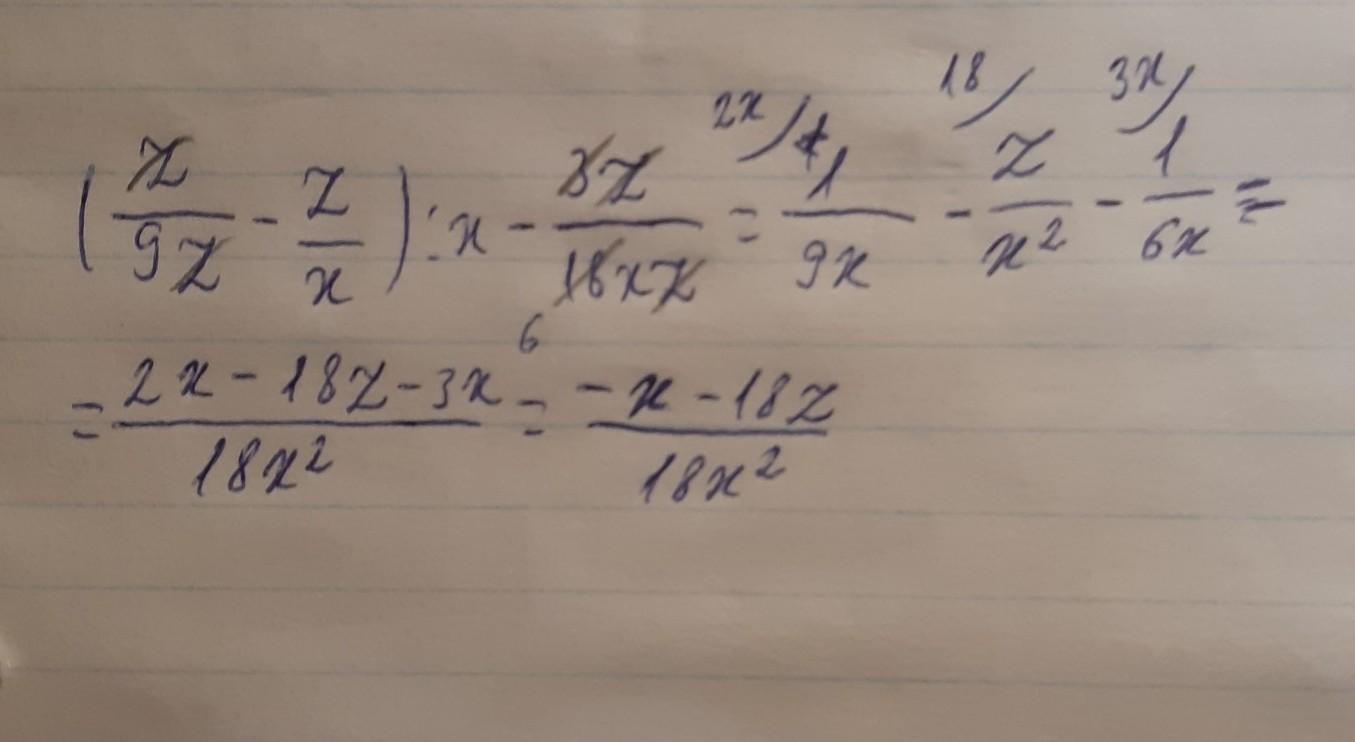 (z/9z - z/x) : x - 3z/18xz = 2x/ 1/9x - 18/ z/x² - 3x/ 1/6x =
6
= 2x - 18z - 3x/18x² = -x - 18z/18x²